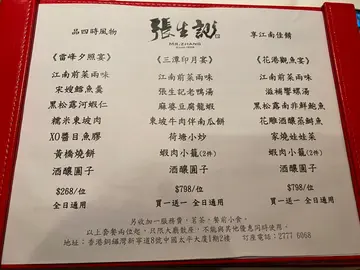 品四時風物
張生記
MR. ZHANG
享江南佳餚
《雷峰夕照宴》
江南前菜兩味
宋嫂鱔魚羹
黑松露河蝦仁
糯米東坡肉
XO醬目魚膠
黃橋燒餅
酒釀圓子
$268/位
全日通用
《三潭印月宴》
江南前菜兩味
張生記老鴨湯
麻婆豆腐龍蝦
東坡牛肉伴南瓜餅
荷塘小炒
蝦肉小籠(2件)
酒釀圓子
$798/位
買一送一 全日通用
《花港觀魚宴》
江南前菜兩味
滋補響螺湯
黑松露南非鮮鮑魚
花雕酒釀蒸鰣魚
家燒娃娃菜
蝦肉小籠(2件)
酒釀圓子
$798/位
買一送一 全日通用
另收加一服務費，茗茶，餐前小食。
以上套餐兩位起，只限大廳散座，不能與其他優惠同時使用。
地址：香港銅鑼灣新寧道8號中國太平大廈1期2樓 訂座電話：2777 6068